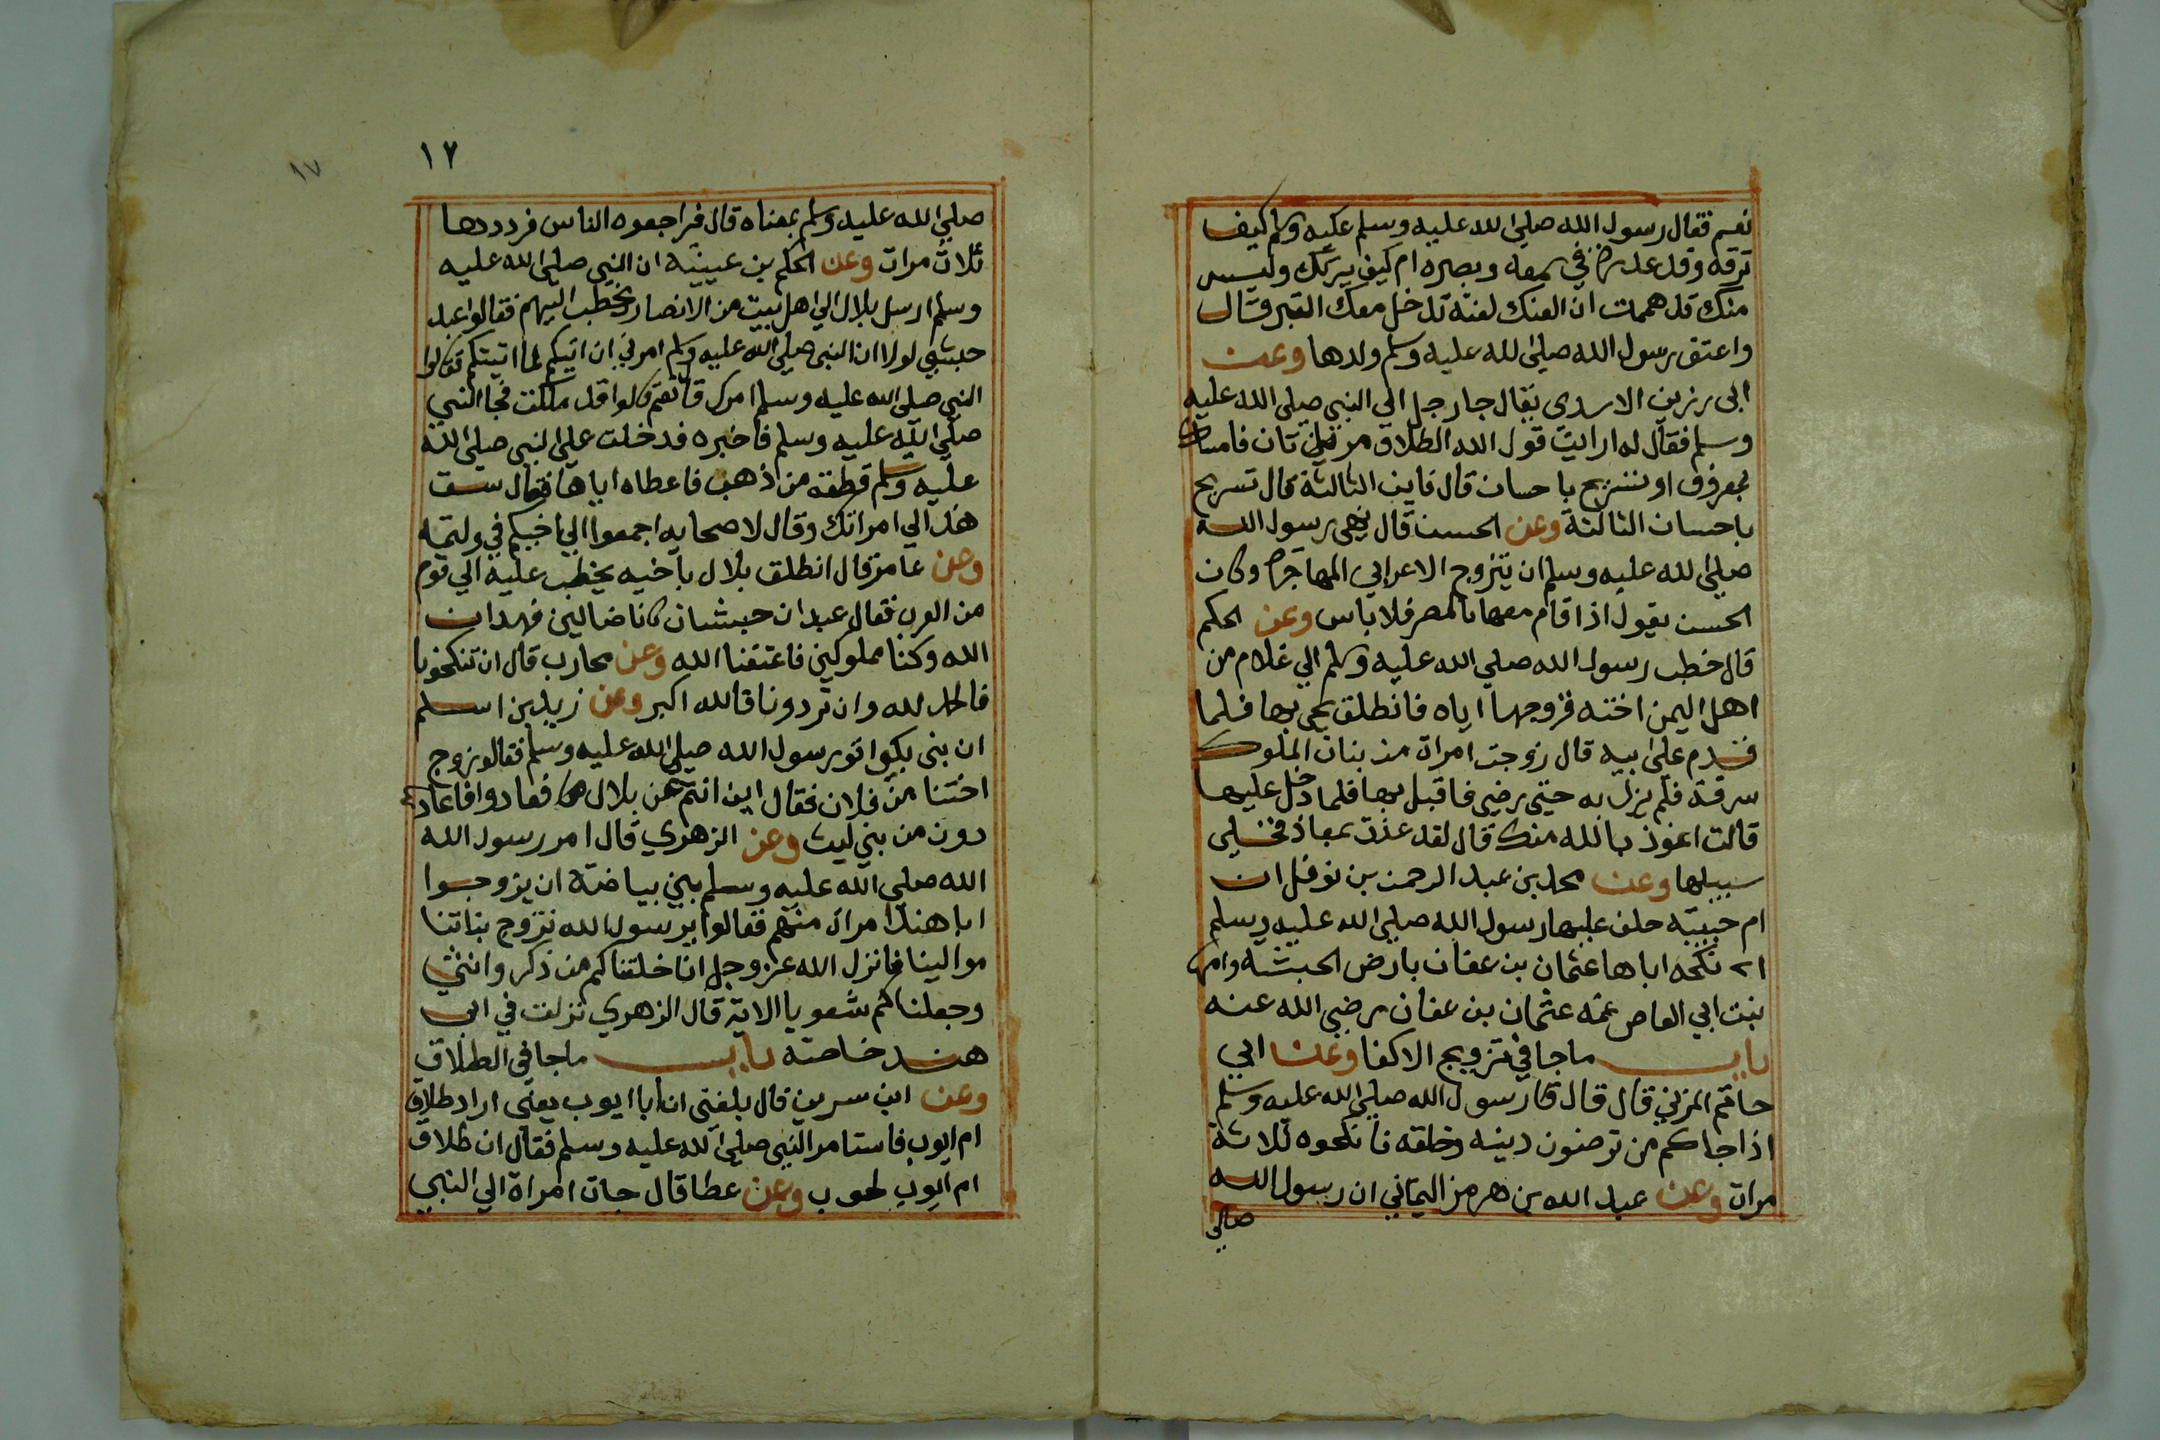 نعم فقال رسول الله صلى الله عليه وسلم عليه وسلم كيف
ترقه وقد غد في سمعه وبصره ام كيف يرتك وليس
منك قد هممت ان العنك لعنة تدخل معك القبر وقال
واعتق رسول الله صلى الله عليه وسلم ولدها وعن
ابى رزين الاسدى يقال جا رجل الى النبي صلى الله عليه
وسلم فقال له ارايت قول الله الطلاق مرتان فامساك
بمعروف او تسريح باحسان قال فاين الثالثة قال تسريح
باحسان الثالثة وعن الحسن قال نهى رسول الله
صلى الله عليه وسلم ان يتزوج الاعرابي المهاجرة وكان
الحسن يقول اذا قام معها بالمصر فلا باس وعن الحكم
قال خطب رسول الله صلي الله عليه وسلم الي غلام من
اهل اليمن اخته فزوجها اياه فانطلق يجي بها فلما
قدم على ابيه قال زوجت امراة من بنات الملوك
سرقة فلم يزل به حتى رضي فاقبل بها فلما دخل عليها
قالت اعوذ بالله منك قال لقد عذت بمعاذ فخلي
سبيلها وعن محمد بن عبد الرحمن بن نوفل ان
ام حبيبة حلف عليها رسول الله صلي الله عليه وسلم
انكحه اباها عثمان بن عفان بارض الحبشة وامها
بنت ابي العاص عمة عثمان بن عفان رضي الله عنه
باب ما جا في تزويج الاكفا وعن ابي
حاتم المزني قال قال قال رسول الله صلي الله عليه وسلم
اذا جاكم من ترضون دينه وخلقه فانكحوه ثلاثة
مرات وعن عبد الله بن هرمز اليماني ان رسول الله
صلي
١٧
١٧
صلي الله عليه وسلم بمعناه قال فراجعوه الناس فرددها
ثلاث مرات وعن الحكم بن عيينة ان النبي صلي الله عليه
وسلم ارسل بلال الي اهل بيت من الانصار يخطب اليهم فقالوا عبد
حبشي لولا ان النبي صلي الله عليه وسلم امرني ان اتيكم لما اتيتكم فقالوا
النبي صلى الله عليه وسلم امرك قال نعم قالوا قد ملكت فجا النبي
صلي الله عليه وسلم فاخبره فدخلت على النبي صلي الله
عليه وسلم قطعة من ذهب فاعطاه اياها فقال سق
هذا الي امراتك وقال لاصحابه اجمعوا الي اخيكم في وليمته
وعن عامر قال انطلق بلال باخيه يخطب عليه الي قوم
من العرب فقال عبدان حبشان كانا ضالين فهدانا
الله وكنا مملوكين فاعتقنا الله وعن محارب قال ان تنكحونا
فالحمد لله وان تردونا فالله اكبر وعن زيد بن اسلم
ان بني بكير اتو رسول الله صلي الله عليه وسلم فقالو زوج
اختنا من فلان فقال اين انتم عن بلال فعادوا فاعاد
دون من بني ليث وعن الزهري قال امر رسول الله
الله صلي الله عليه وسلم بني بياضة ان يزوجوا
ابا هند امراة منهم فقالوا يرسول الله نزوج بناتنا
موالينا فانزل الله عز وجل انا خلقناكم من ذكر وانثى
وجعلناكم شعوبا الاية قال الزهري نزلت في ابي
هند خاصة باب ما جا في الطلاق
وعن ابن سرين قال بلغني ان ابا ايوب يعني اراد طلاق
ام ايوب فاستامر النبي صلي الله عليه وسلم فقال ان طلاق
ام ايوب لحوب وعن عطا قال جات امراة الي النبي